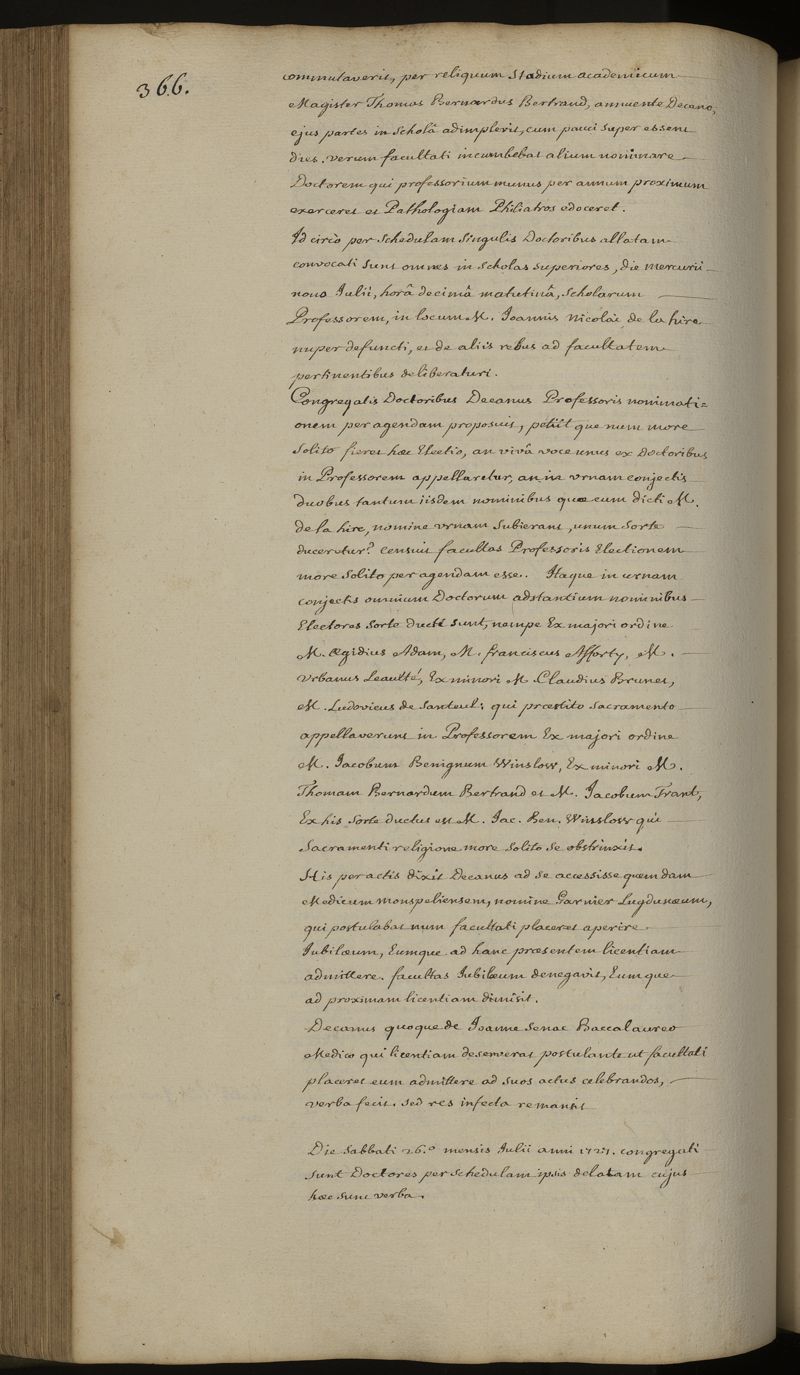 366.
commutaverit, per reliquum Stadium academicum
Magister Thomas Bernardus Bertrand, annuente Decano,
ejus partes in Scholâ adimplevit, cum pauci super essent
dies. verum facultati incumbebat alium nominare
Doctorem qui professorium munus per annum proximum
exerceret et Pathologiam Philiatros edoceret.
Id circò per Schedulam Singulis Doctoribus allatam
convocati Sunt omnes in Scholas Superiores, die mercurii
nono Julii, horâ decimâ matutinâ, Scholarum
Professorem, in locum M. Joannis Nicolai de la hire
nuper defuncti, et de aliis rebus ad facultatem
pertinentibus deliberaturi.
Congregatis Doctoribus Decanus Professoris nominati=
onem per agendam proposuit, petiit que num more
Solito fieret hæc Electio, an vivâ voce unus ex Doctoribus
in Professorem appellaretur, an in vrnam conjectis
duobus tantum iisdem nominibus quæ cum dicti M.
de la hire, nomine vrnam Subierant, unum Sorte
duceretur? Censuit facultas Professoris Electionem
more Solito per agendam esse. Itaque in urnam
conjectis omnium Doctorum adstantium nominibus
Electores Sorte ducti Sunt, nempe Ex majori ordine
M. Ægidius Adam, M. franciscus Afforty, M.
Vrbanus Leaulté, Ex minori M. Claudius Brunet,
M. Ludovicus de Santeul; qui præstito Sacramento
appellaverunt in Professorem Ex majori ordine
M. Jacobum Benignum Winslow, Ex minori M.
Thomam Bernardum Bertrand et M. Jacobum Trant,
Ex his Sorte ductus est M. Jac. Ben. Winslow qui
Sacramenti religione more Solito Se obstrinxit.
His per actis dixit Decanus ad Se accessisse quemdam
Medicum monspeliensem, nomine Garnier Lugdunæum,
qui postulabat num facultati placeret aperire
Jubilæum, Eumque ad hanc præsentem licentiam
admittere. facultas Jubilæum denegavit, Eum que
ad proximam licentiam dimisit.
Decanus quoque de Joanne Senac Baccalaureo
Medico qui licentiam deseruerat postulante ut facultati
placeret eum admittere ad suos actus celebrandos,
verba fecit. Sed res infecta remansit
Die Sabbati 26.° mensis Julii anni 1727. congregati
Sunt Doctores per Schedulam ipsis delatam cujus
hæc Sunt verba.